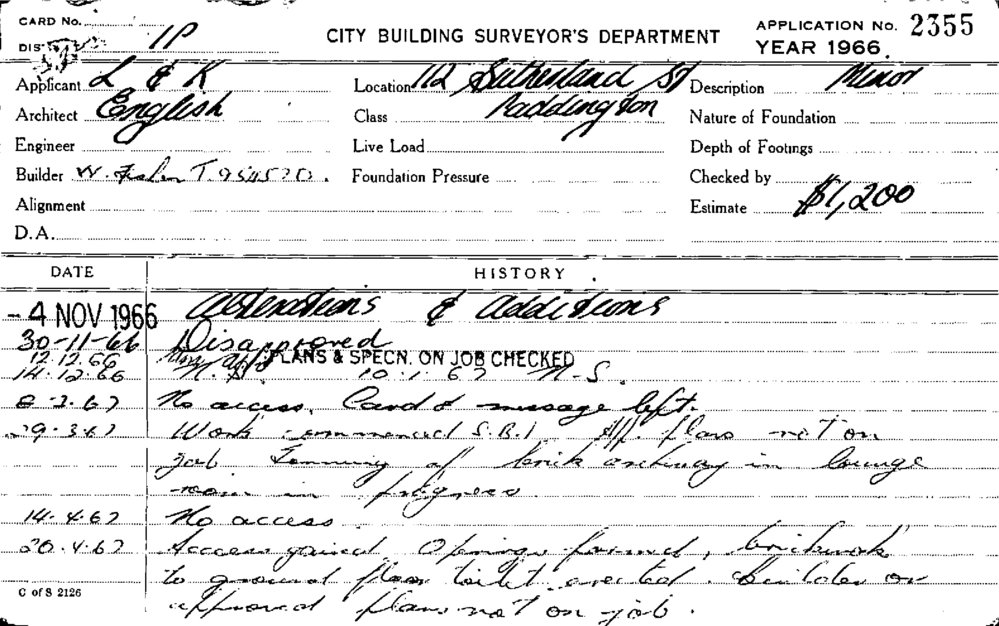 CARD No.
DIST 1P
CITY BUILDING SURVEYOR'S DEPARTMENT
APPLICATION No. 2355
YEAR 1966.
Applicant L & K
Location 112 Sutherland St
Description Minor
Architect English
Class Paddington
Nature of Foundation
Engineer
Live Load
Depth of Footings
Builder W. Fisher T.
Foundation Pressure
Checked by
Alignment
Estimate $1,200
D.A.
DATE HISTORY
- 4 NOV 1966 Alterations & additions
30-11-66 Disapproved
12.12.66 PLANS & SPECN. ON JOB CHECKED
14.12.66 10.1.67 N.S.
8.2.67 No access. Card & message left.
29.3.67 Work commenced S.B.I. App. plans not on
job. Forming of brick archway in lounge
room in progress.
14.4.67 No access.
20.4.67 Access gained. Openings formed, brickwork
to ground floor toilet erected. Builder or
approved plans not on job.
C of S 2126